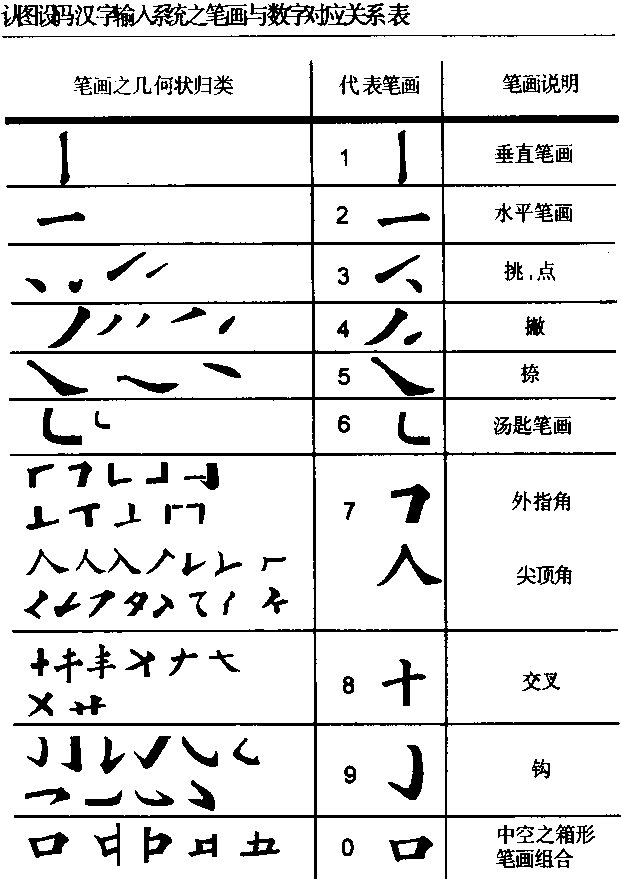 训图设码汉字输入系统之笔画与数字对应关系表
笔画之几何状归类 代表笔画 笔画说明
1 丨 垂直笔画
2 一 水平笔画
3 挑,点
4 撇
5 捺
6 汤匙笔画
7 外指角
人 尖顶角
8 十 交叉
9 钩
0 口 中空之箱形
笔画组合